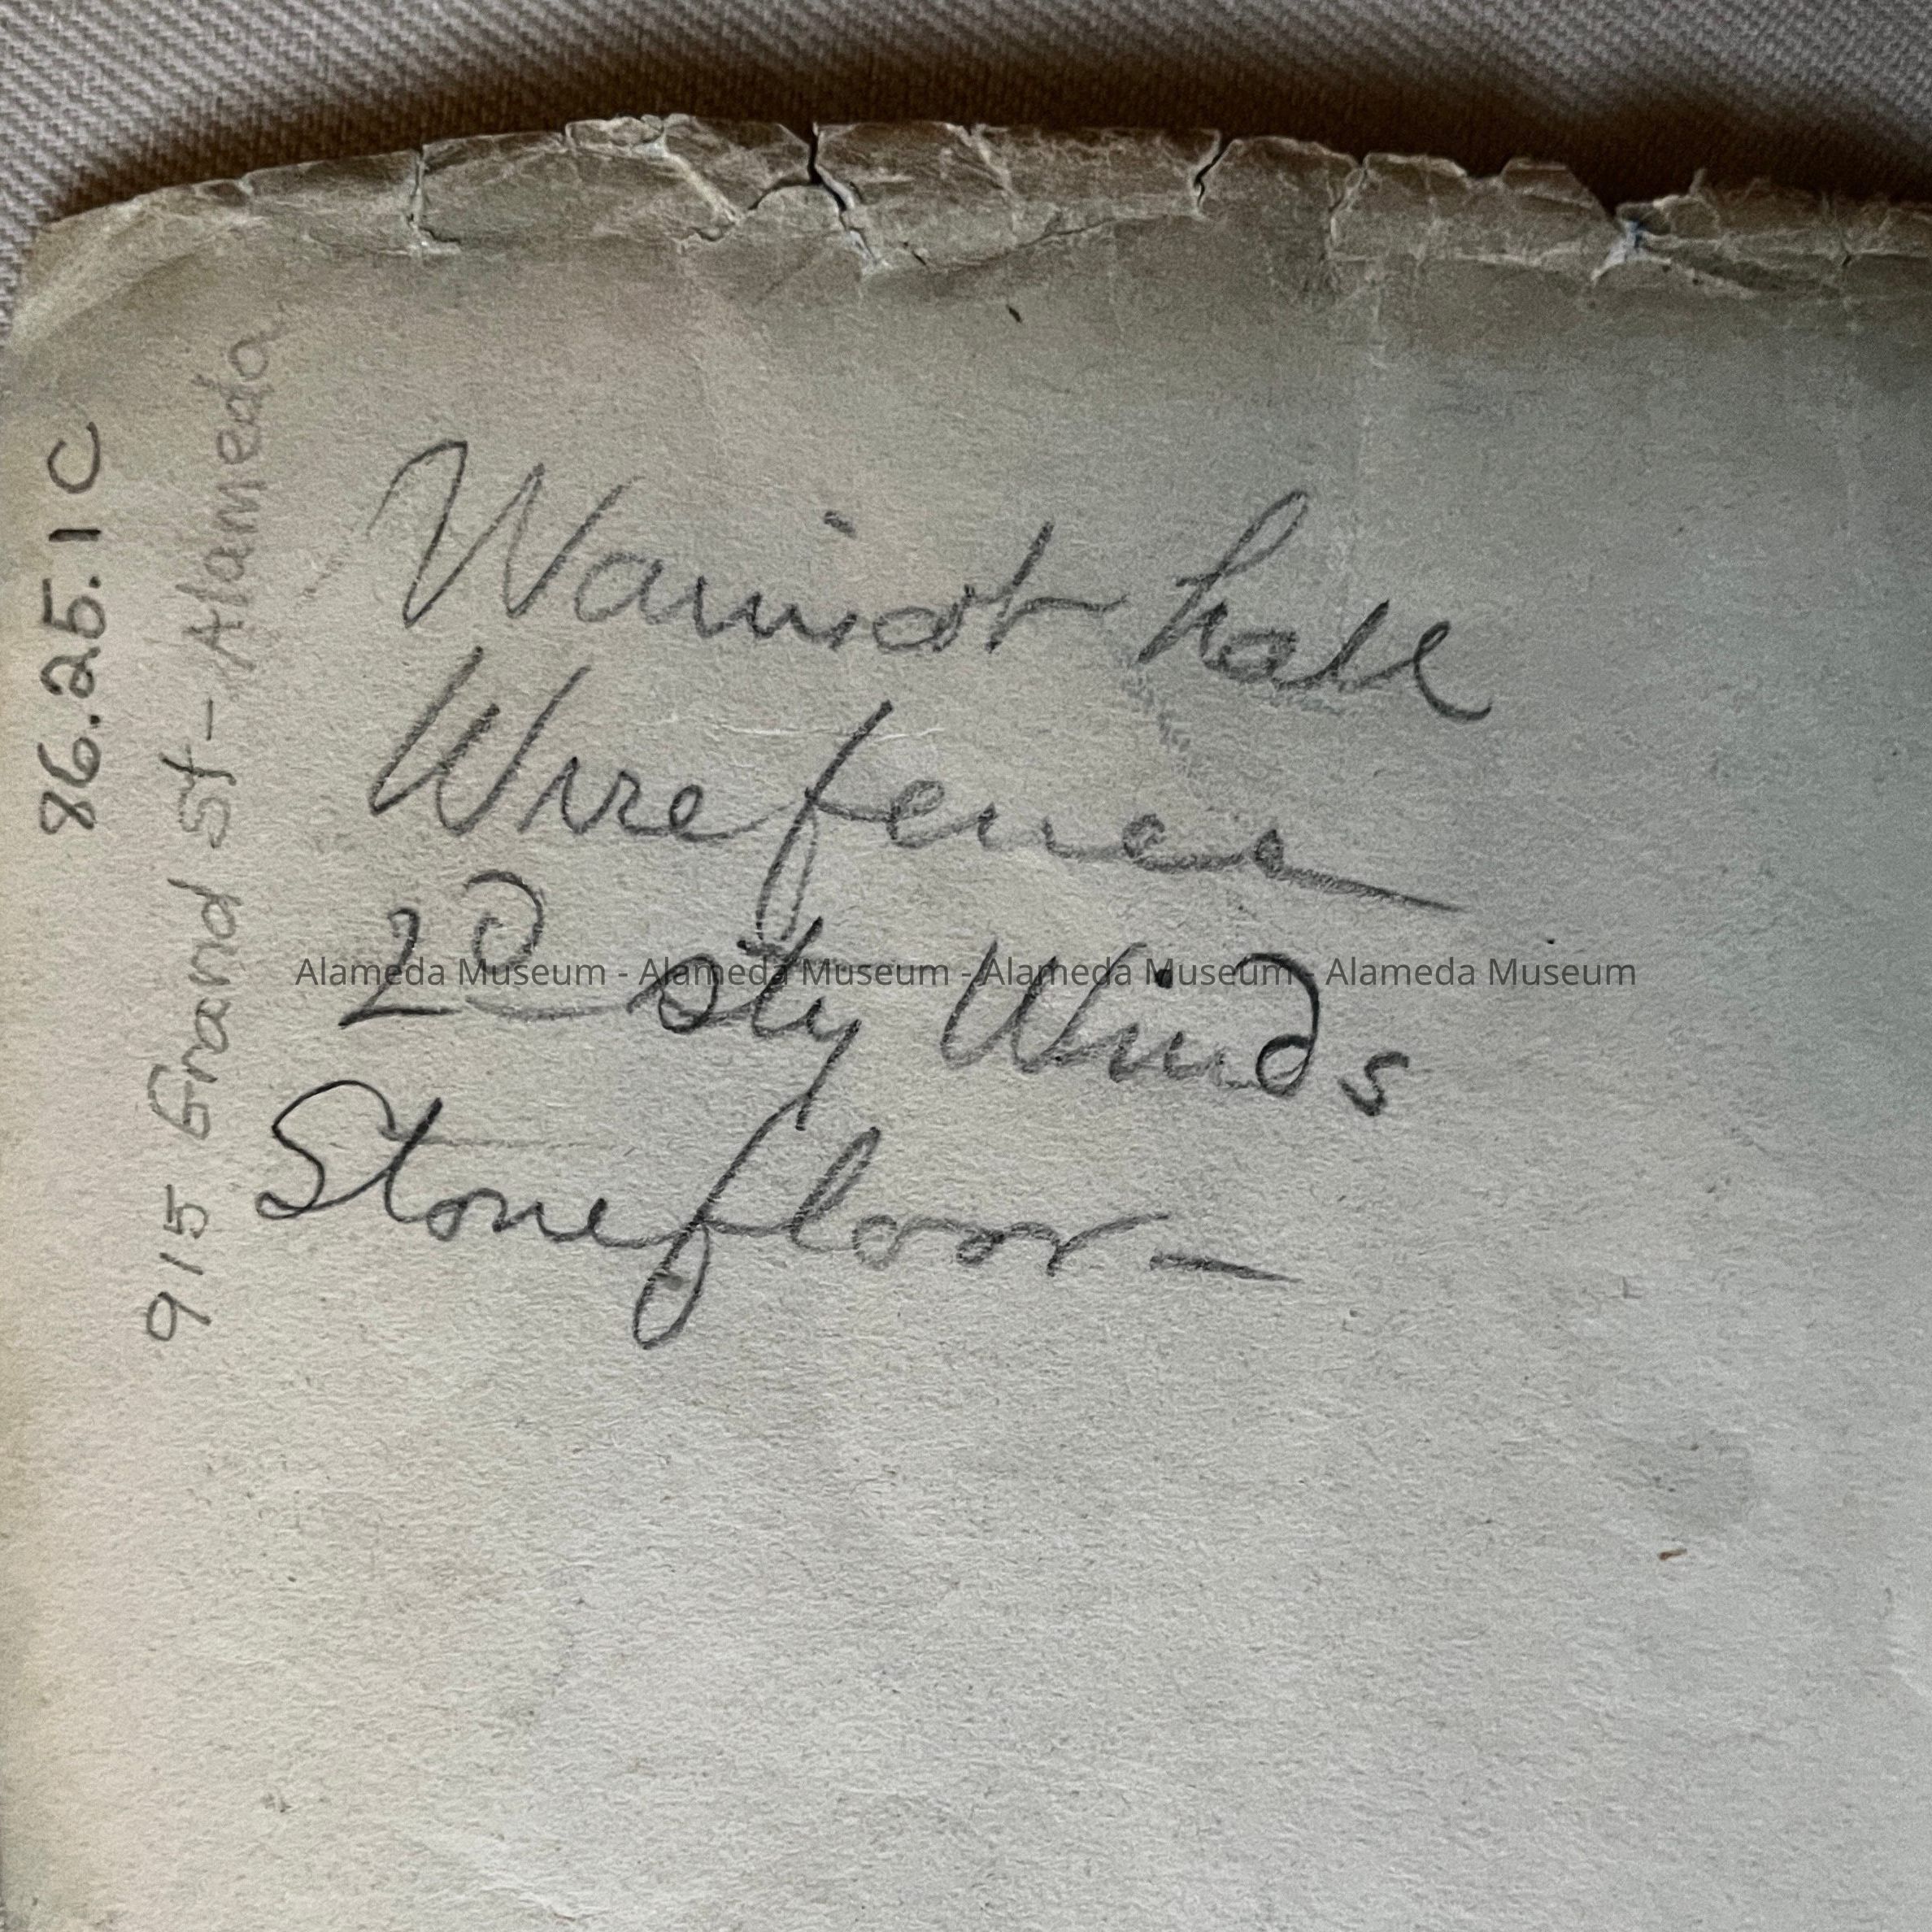 86.25.1C
915 Grand St - Alameda
Wainscot hall
Wire fence
2D sty Winds
Stone floor -
Alameda Museum - Alameda Museum - Alameda Museum - Alameda Museum